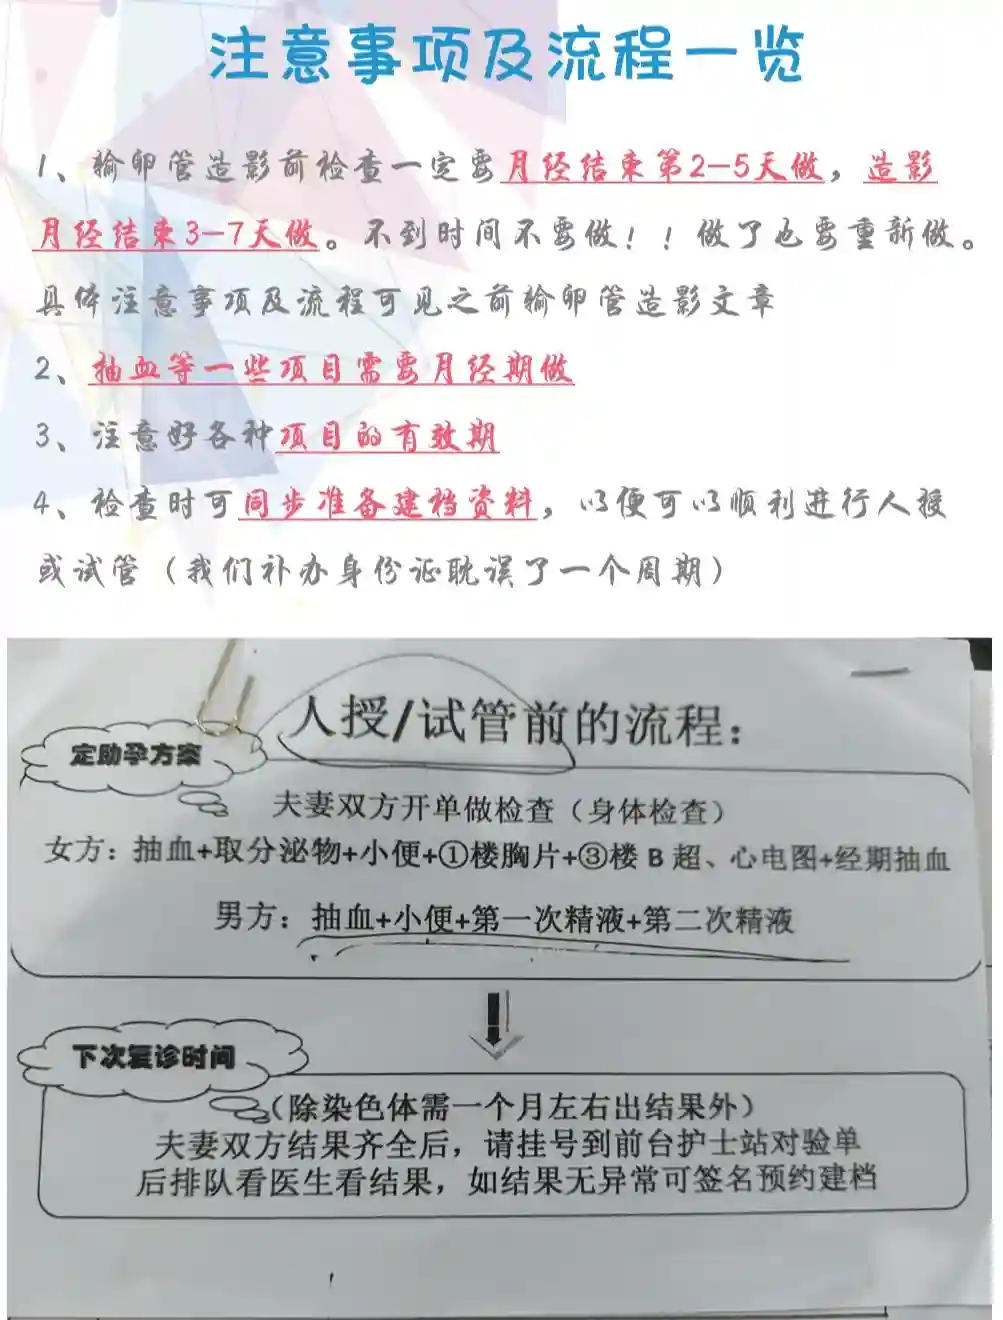 注意事项及流程一览
1、输卵管造影前检查一定要月经结束第2-5天做，造影
月经结束3-7天做。不到时间不要做！！做了也要重新做。
具体注意事项及流程可见之前输卵管造影文章
2、抽血等一些项目需要月经期做
3、注意好各种项目的有效期
4、检查时可同步准备建档资料，以便可以顺利进行人授
或试管（我们补办身份证耽误了一个周期）
人授/试管前的流程：
定助孕方案
夫妻双方开单做检查（身体检查）
女方：抽血+取分泌物+小便+①楼胸片+③楼 B 超、心电图+经期抽血
男方：抽血+小便+第一次精液+第二次精液
下次复诊时间
（除染色体需一个月左右出结果外）
夫妻双方结果齐全后，请挂号到前台护士站对验单
后排队看医生看结果，如结果无异常可签名预约建档